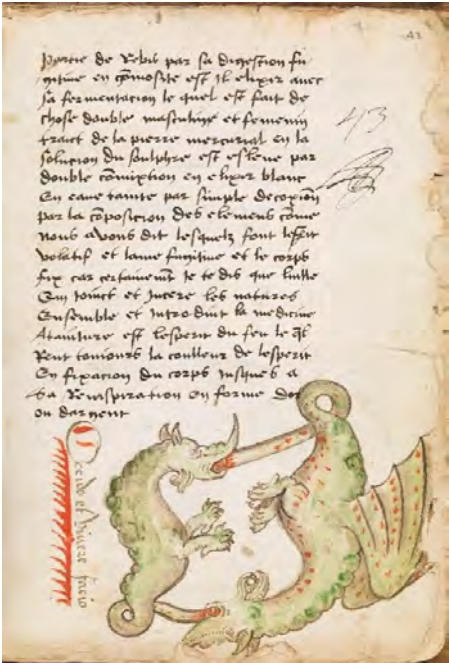 43
partie de Rebis par sa digestion fu
gitiue en est Il elixir auec
sa fermentacion le quel est fait de
chose double masculine et feminin
traict de la pierre mercurial en la
solucion du soulphre est esleue par
double cōmixtion en elixir blanc
En eaue tainte par simple decoxiōn
par la cōposicion des elemens cōme
nous auons dit lesquelz sont
volatif et lame fugitiue et le corps
fix car certainemēt Je te dis que
Qui joinct et Incere les natures
Ensemble et Introduit la medicine
Atainture est lesperit du feu le q̄l
Rent tousiours la coulleur de lesperit
En fixacion du corps Jusques a
sa en forme dor
ou dargent
43
Occido et vivere facio